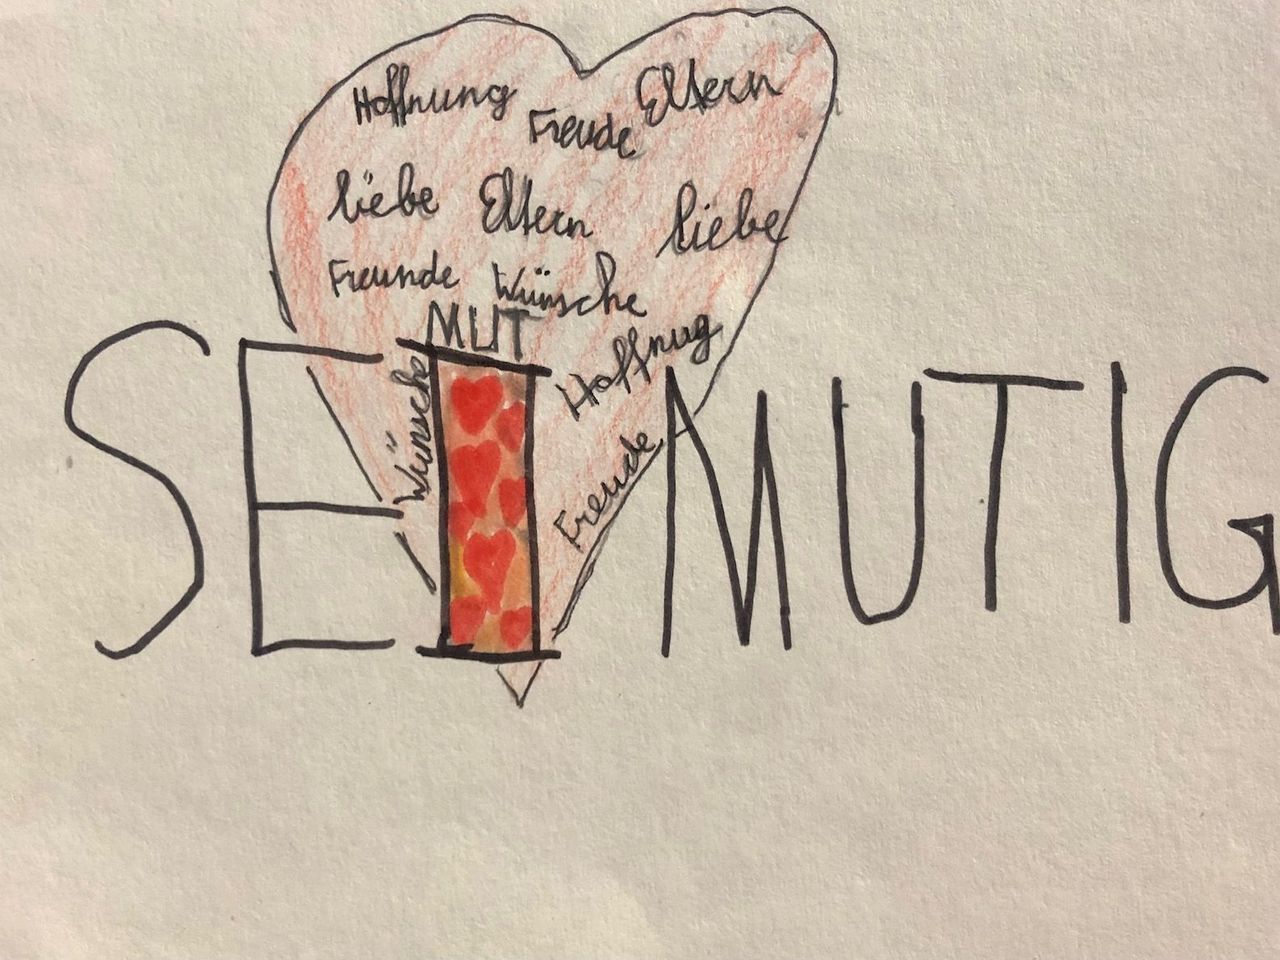 Hoffnung Freude Eltern
liebe Eltern liebe
Freunde Wünsche
MUT
Wünsche Hoffnug
Freude
SEI MUTIG